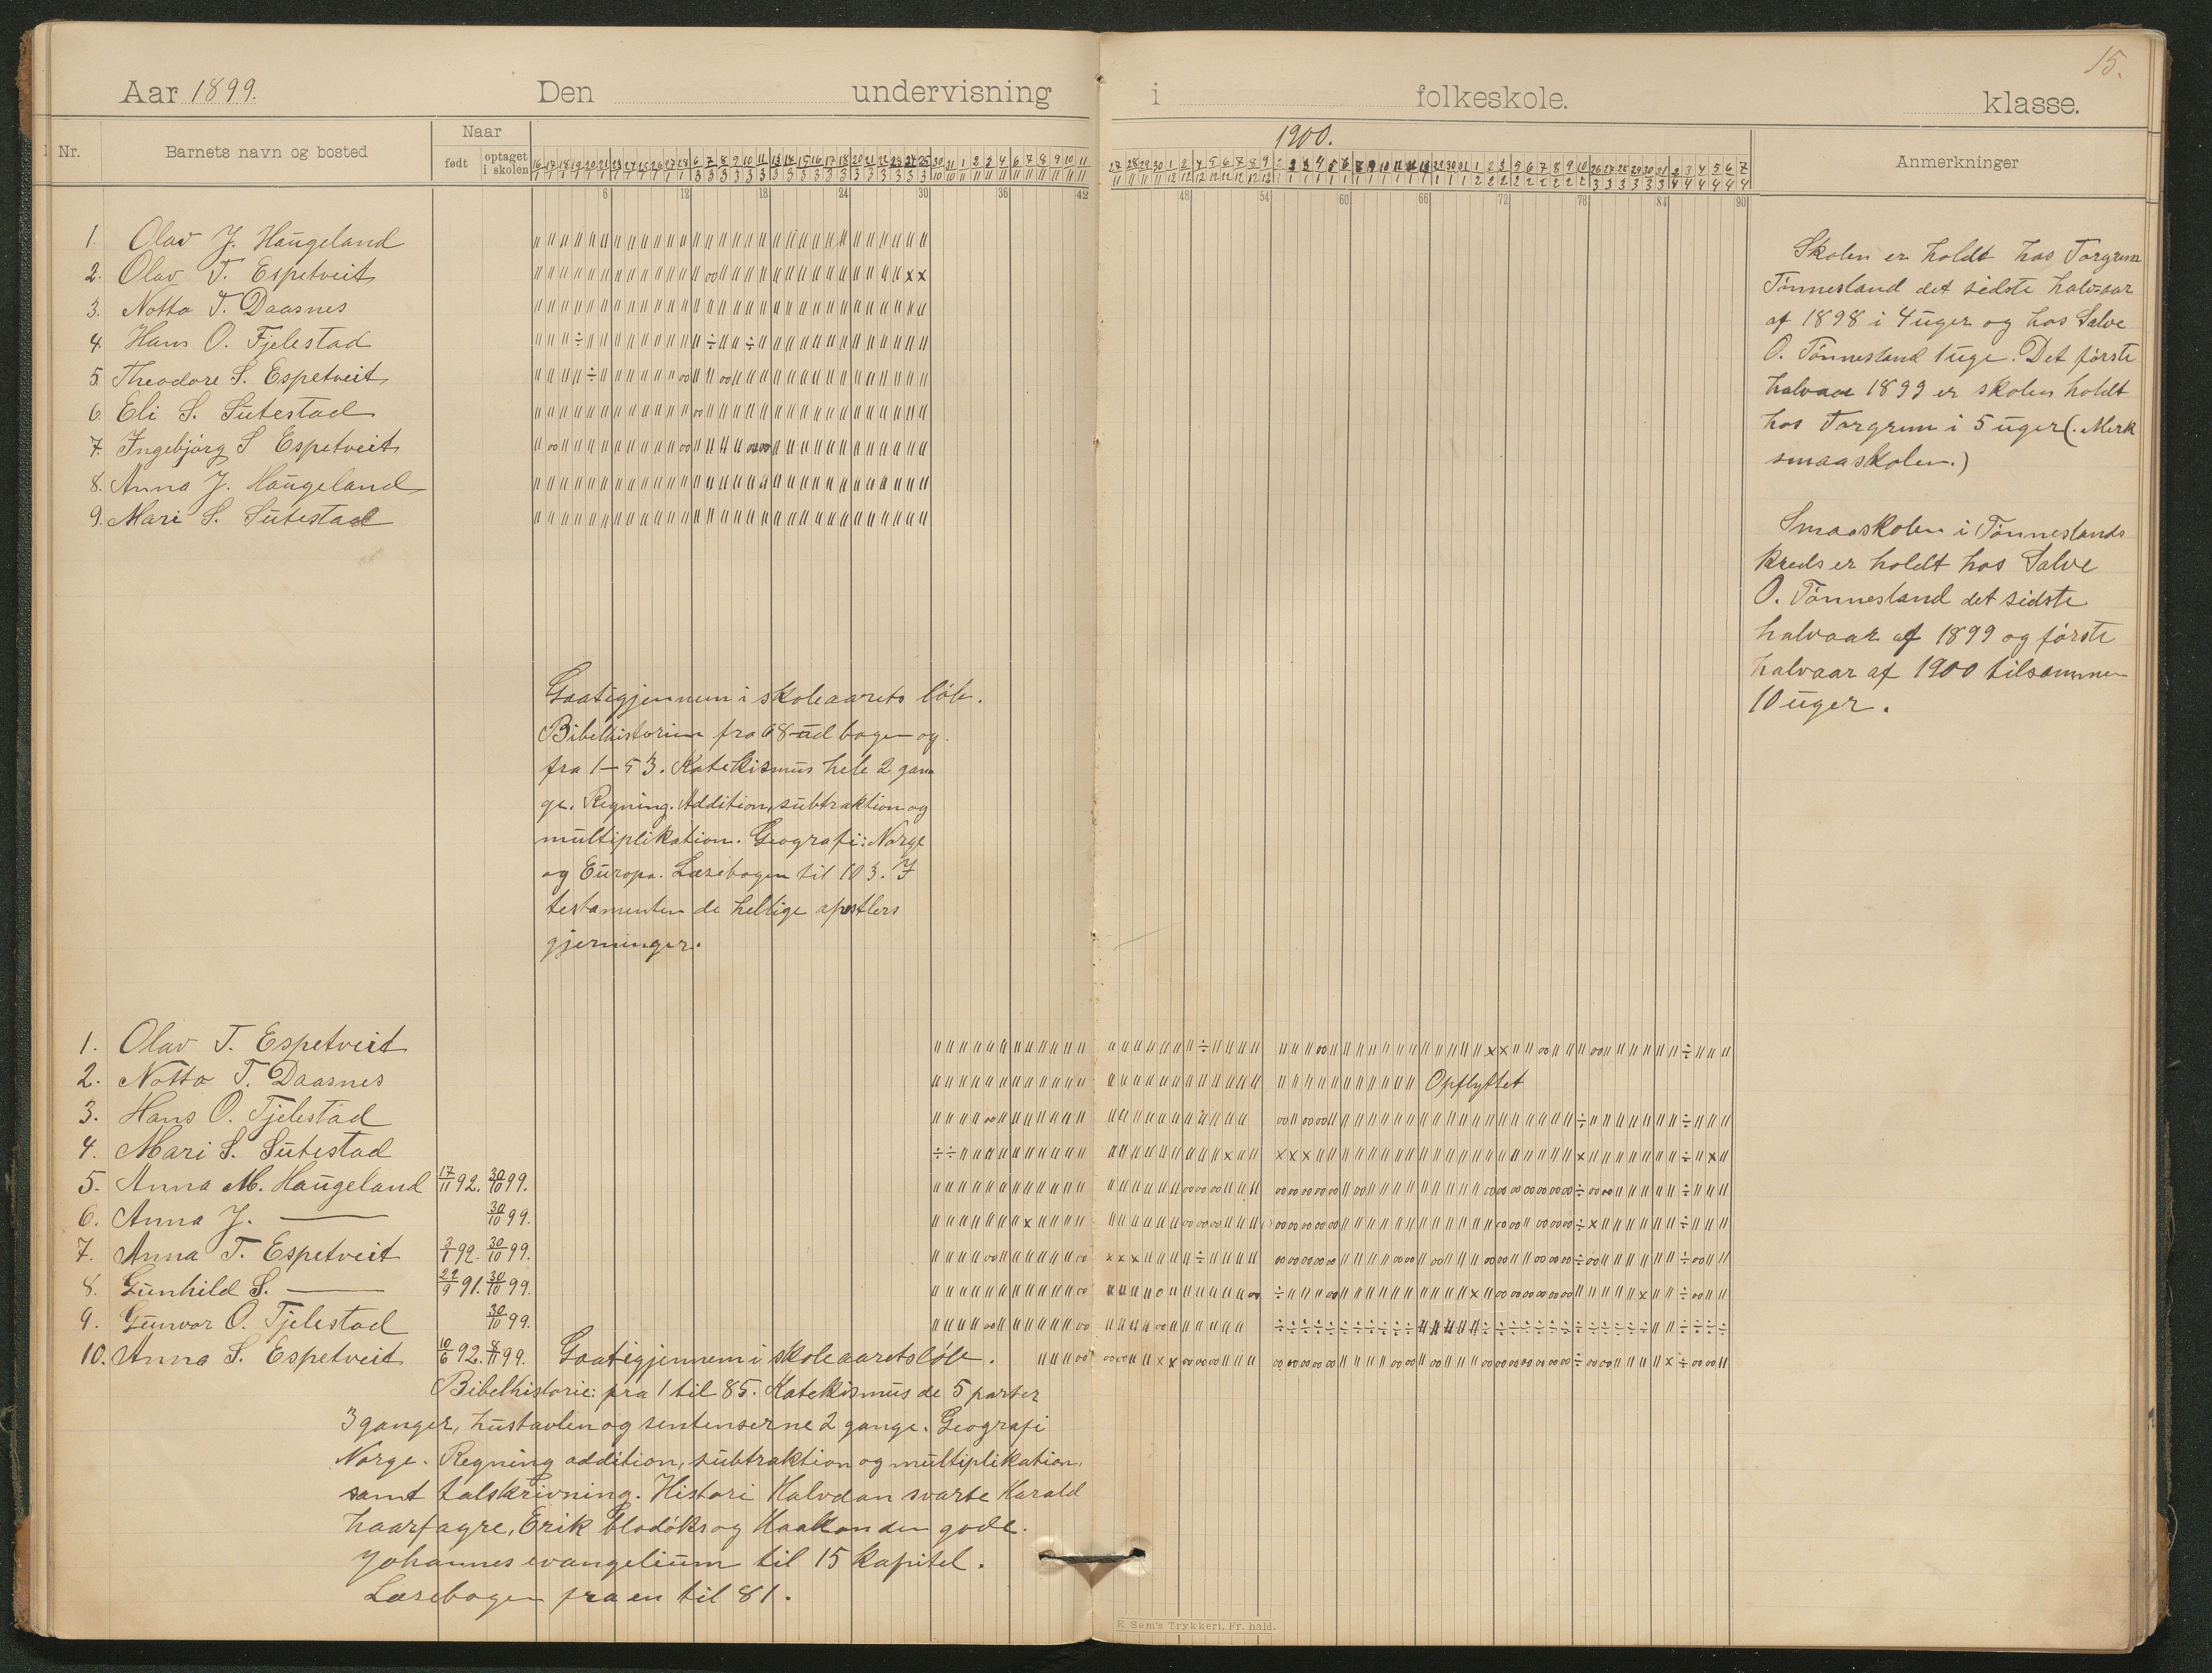 15.
Aar 1899. Den undervisning i folkeskole. klasse.
1900.
Nr. Barnets navn og bosted Naar født optaget i skolen Anmerkninger
6 12 18 24 30 36 42 48 54 60 66 72 78 84 90
1. Olav J. Haugeland
2. Olav T. Espetveit
3. Notto T. Daasnes
4. Hans O. Fjelestad
5. Theodore S. Espetveit
6. Eli S. Sutestad
7. Ingebjørg S Espetveit
8. Anna J. Haugeland
9. Mari S. Sutestad
Gaatigjennem i skoleaarets løb.
Bibelhistorien fra 68 ud bogen og
fra 1–53. Katekismus hele 2 gan
ge. Regning. Addition, subtraktion og
multiplikation. Geografi: Norge
og Europa. Læsebogen til 103. I
testamenten de hellige apostlers
gjerninger.
Skolen er holdt hos Torgrim
Tønnesland det sidste halv=aar
af 1898 i 4 uger og hos Salve
O. Tønnesland 1 uge. Det første
halvaar 1899 er skolen holdt
hos Torgrim i 5 uger (. Merk
smaaskolen.)
Smaaskolen i Tønneslands
kreds er holdt hos Salve
O. Tønnesland det sidste
halvaar af 1899 og første
halvaar af 1900 tilsammen
10 uger.
1. Olav T. Espetveit
2. Notto T. Daasnes Opflyttet
3. Hans O. Fjelestad
4. Mari S. Sutestad
5. Anna M. Haugeland 17/11 92. 30/10 99.
6. Anna J. — 30/10 99.
7. Anna T. Espetveit 3/1 92. 30/10 99.
8. Gunhild S. — 22/9 91. 30/10 99.
9. Gunvor O. Fjelestad 30/10 99.
10. Anna S. Espetveit 10/6 92. 8/11 99. Gaatigjennem i skoleaarets løb.
Bibelhistorie: fra 1 til 85. Katekismus de 5 parter
3 ganger, hustavlen og sentenserne 2 gange. Geografi
Norge. Regning addition, subtraktion og multiplikation.
samt talskrivning. Histori Halvdan svarte Harald
haarfagre, Erik blodøks og Haakon den gode.
Johannes evangelium til 15 kapitel.
Læsebogen fra en til 81.
E. Sem's Trykkeri, Fr. hald.